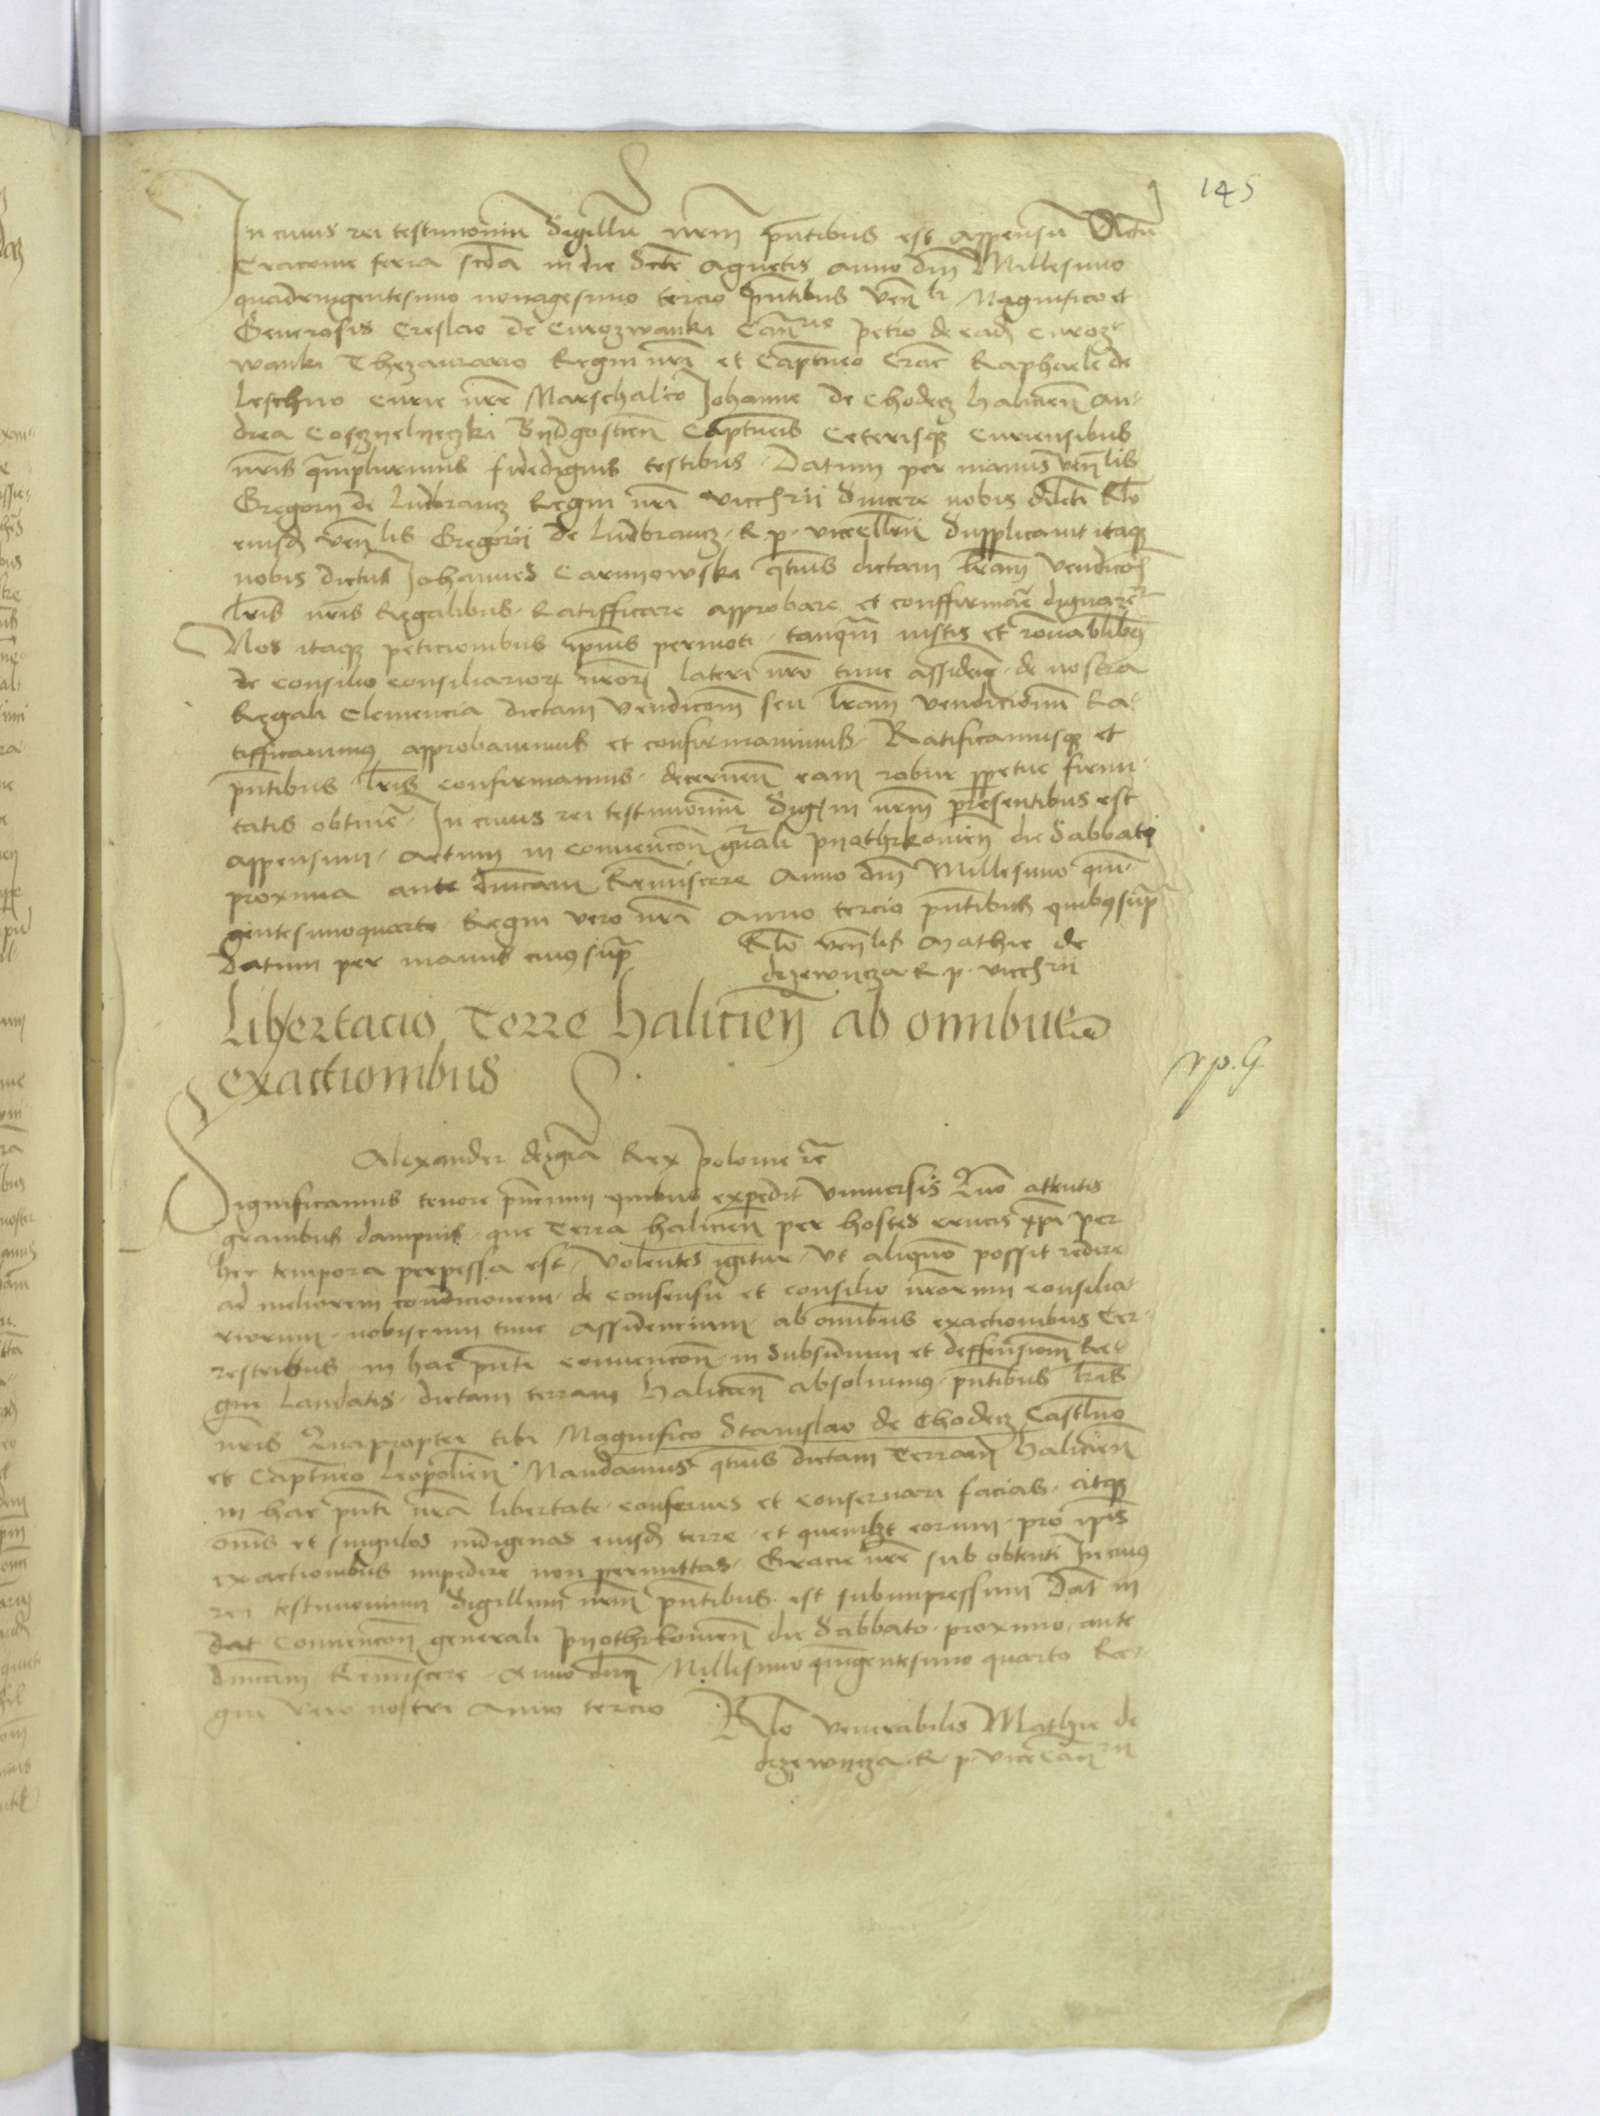 145
In cuius rei testimoniū Sigillū nrm̄ pn̄tibus est appensū Actū
Cracouie feria scd̄a in die Sctē Agnetis anno dnī Millesimo
quadringentesimo nonagesimo tercio pn̄tibus Ven̄li Magnifico et
Generosis Creslao de Curozwanki Can̄rio petro de ead̄ Curoz-
wanki Thezaurario Regni nrī et Capt̄neo Crac̄ Raphaele de
Leschno Curie nr̄e Marschalco Johanne de Chodecz halicien̄ An-
drea Coszyelyeczki Bydgostien̄ Capt̄neis Ceterisq̨ Curiensibus
nrīs q̄mplurimis fidedignis testibus. Datum per manus ven̄lis
Gregorij de Ludbrancz Regni nrī vicc̄rii Sincere nobis dilecti Rlō
eiusd̄ ven̄lis Gregorii de Ludbrancz. R. p. vicecell̄rii Supplicauit itaq̨
nobis dictus Johannes Carnowski q̄tnus dictam lr̄am Vendicōis
lr̄is nrīs Regalibus. Ratifficare approbare et conffirmar̄e dignarer̄
Nos itaq̨ peticionibus ip̄ius permoti. tanq̄m iustis et rōnabilibus
de consilio consiliarior̨ nr̄or̨ lateri nr̄o tunc assiden̄. de nostra
Regali Clemencia dictam Vendicōm̄ seu lr̄am vendicionū Ra-
tifficauimus approbauimus et confirmauimus. Ratificamusq̨ et
pn̄tibus lr̄is confirmamus. decernen̄ eam robur ꝑpetue firmi-
tatis obtiner̄e. In cuius rei testimoniū Sig̨m nrm̄ presentibus est
appensum. Actum in Conuencōn̄ gn̄ali pyothrkowien̄ die Sabbati
proxima ante dn̄icam Reminiscere Anno dnī Millesimo quin-
gentesimoquarto Regni vero nrī Anno tercio pn̄tibus quibus sup̄ra
Datum per manus cuius sup̄ra
Rlō ven̄lis Mathie de
drzewycza R. p. vicc̄rii
Libertacio Terre halicien̄ ab omnibus
exactionibus
rp. G
Alexander dei gr̄a Rex polonie rc̄
Significamus tenore pn̄cium quibus expedit Vniuersis Quō attentis
grauibus dampnis. que Terra halicien̄ per hostes crucis xp̄i per
hec tempora perpessa est. Volentes igitur. Vt aliquō possit redire
ad meliorem condicionem. de consensu et consilio nr̄orum consilia-
riorum. nobiscum tunc assidencium. ab omībus exactionibus Ter-
restribus in hac pn̄ti conuencōn̄. in Subsidium et deffensionem̄ Re-
gni laudatis. dictam terram halicien̄ absoluimus. pn̄tibus lr̄is
nrīs Quapropter tibi Magnifico Stanislao de Chodecz Castll̄no
et Capt̄neo leopolien̄. Mandamus q̄tnus dictam Terram halicien̄
in hac pn̄ti nrā libertate. conserues et conseruari facias. Atq̨
om̄s et singulos indigenas eiusd̄ terre. et quemlibet eorum. pro ip̄is
exactionibus impedire non permittas. Gracie nr̄e sub obtentu In cuius
rei testimonium Sigillum nrm̄ pn̄tibus. est subimpressum Dat̄ in
dat Conuencōn̄ generali pyothrkowien̄ die Sabbato. proximo. ante
dn̄icam Reminiscere. Anno dnī Millesimo quingentesimo quarto Re-
gni vero nostri Anno tercio
Rlō venerabilis Mathie de
drzewycza. R. p. vicecan̄rii